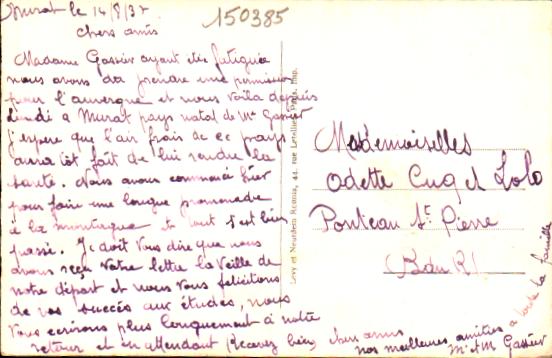 Murat le 14/8/37
150385
chers amis
Madame Gassier ayant etée fatiguée
nous avons du prendre une permission
pour l'auvergne et nous voila depuis
Lundi a Murat pays natal de Mr Gassier
j'espere que l'air frais de ce pays
aura tot fait de lui rendre la
santé. Nous avons commencé hier
pour faire une longue promenade
à la montagne et tout s'est bien
passé. Je doit vous dire que nous
avons reçu votre lettre la veille de
notre départ et nous vous felicitions
de vos succés aux études, nous
vous ecrirons plus longuement à notre
retour et en attendant Recevez bien chers amis
nos meilleures amitiés a toute la famille
Mr et M Gassier
Levy et Neurdein Réunis, 44, rue Letellier, Paris, Imp.
Mesdemoiselles
Odette Cuq et Lolo
Ponteau St Pierre
(B du R)